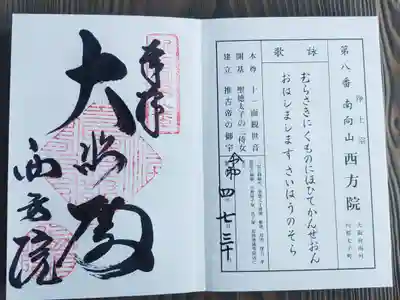 浄土宗
第八番 南向山 西方院
大阪府南河内郡太子町
詠歌
むらさきにくものにほひてかんぜおん
おはしまします さいはうのそら
本尊 十一面観世音
開基 聖徳太子の三侍女
建立 推古帝の御宇
令和 四 七 三十
奉拝
大悲殿
西方院